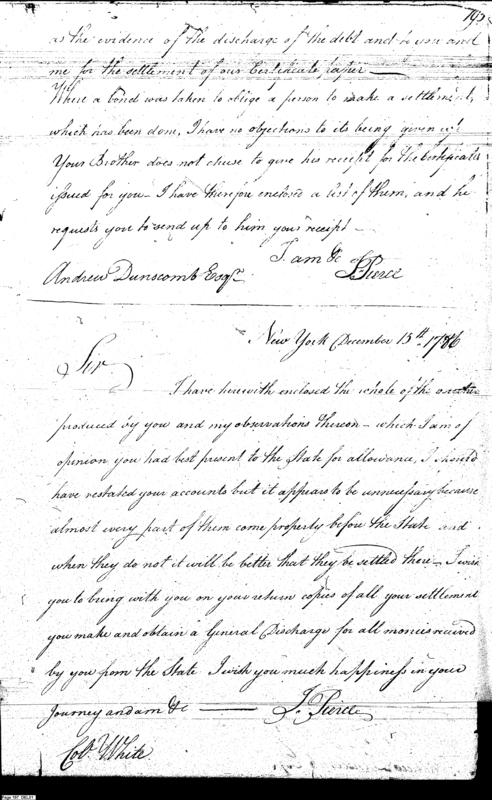 as the evidence of the discharge of the debt and to you and
me for the settlement of our Certificate paper —
Where a bond was taken to oblige a person to make a settlement,
which has been done, I have no objections to its being given up
Your Brother does not chuse to give his receipt for the Certificates
issued for you — I have therefore enclosed a list of them, and he
requests you to send up to him your receipt —
I am &c J. Pierce
Andrew Dunscomb Esqr.
New York December 15th. 1786
Sir
I have herewith enclosed the whole of the
produced by you and my observations thereon — which I am of
opinion you had best present to the State for allowance, I should
have restated your accounts but it appears to be unnecessary because
almost every part of them come properly before the State and
when they do not it will be better that they be settled there — I wish
you to bring with you on your return copies of all your settlement
you make and obtain a General Discharge for all monies received
by you from the State. I wish you much happiness in your
Journey and am &c — J. Pierce
Colo. White